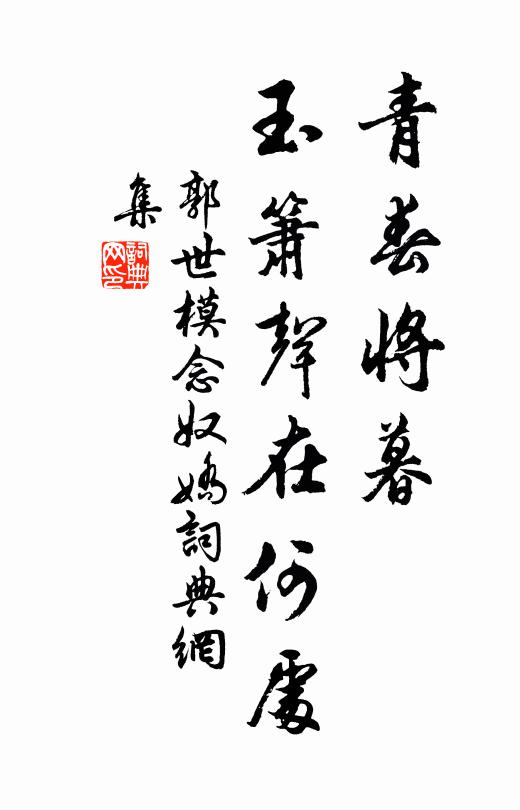 青春將暮
玉簫聲在何處
郭世模念奴嬌詞典網
集
詞典網印